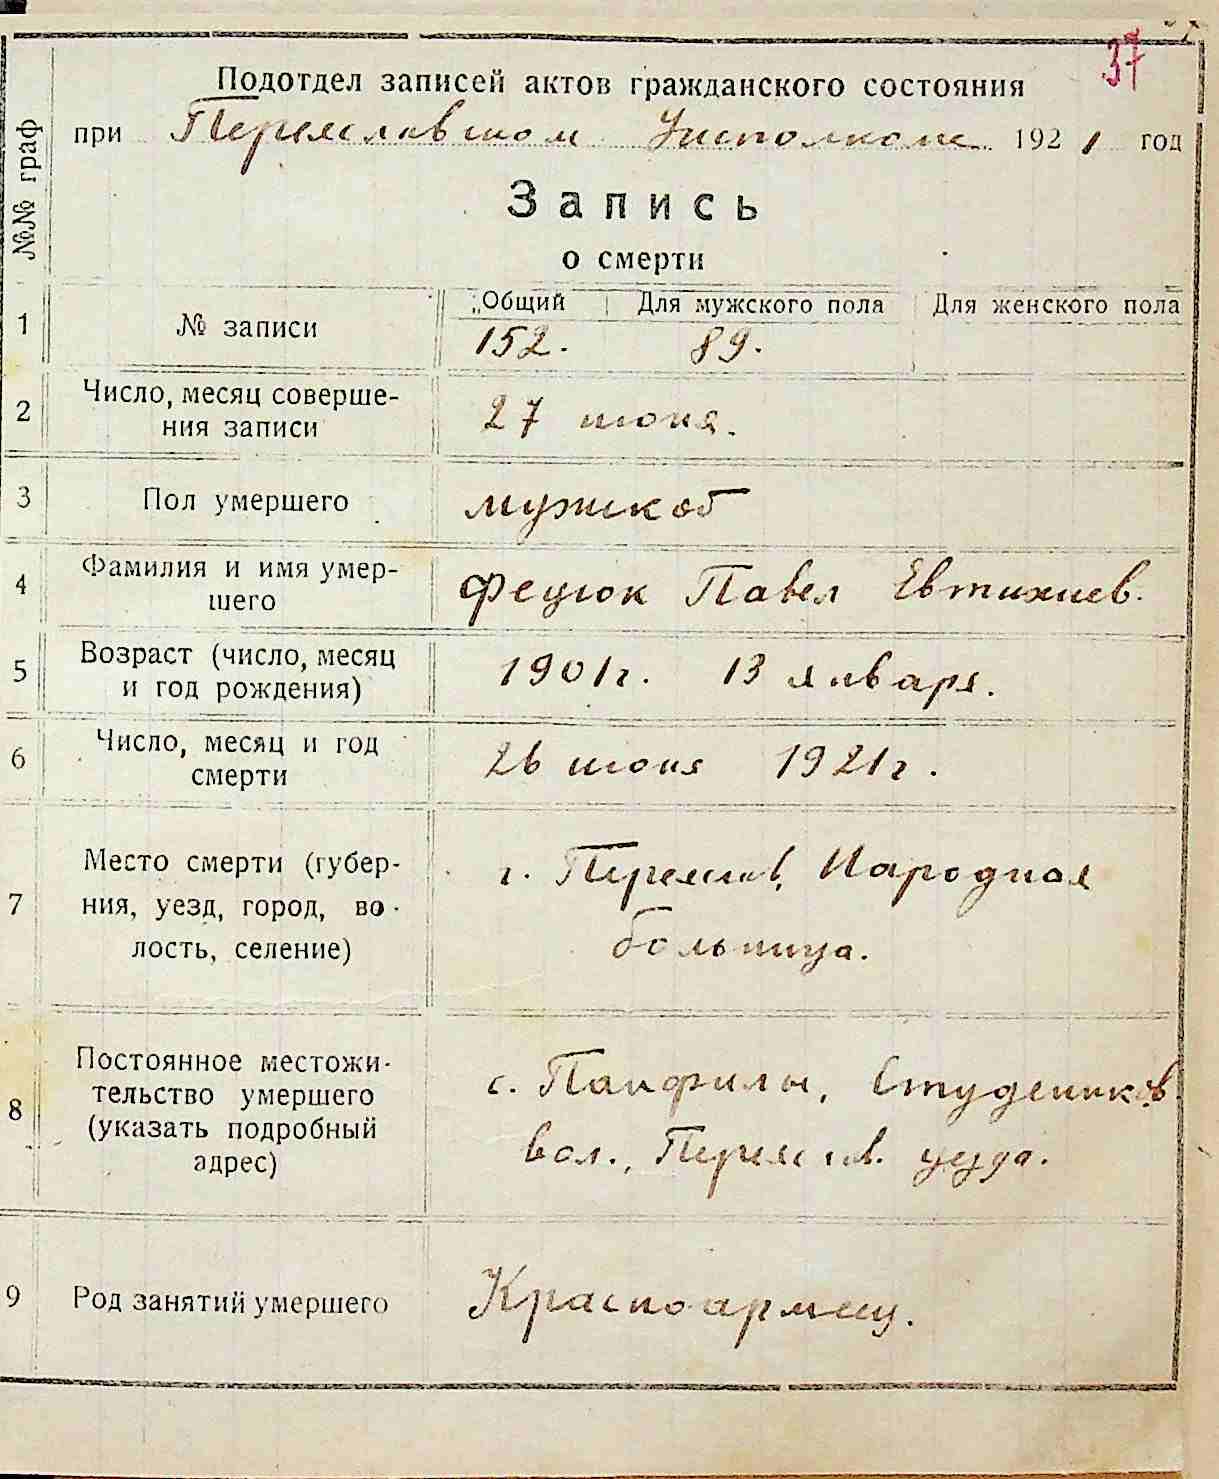 37
Подотдел записей актов гражданского состояния
при Переяславском Исполкоме 1921 год
№№ граф
Запись
о смерти
1 № записи Общий Для мужского пола Для женского пола
152. 89.
2 Число, месяц соверше-
ния записи 27 июня.
3 Пол умершего мужской
4 Фамилия и имя умер-
шего Фецюк Павел Евтихиев.
5 Возраст (число, месяц
и год рождения) 1901 г. 13 января.
6 Число, месяц и год
смерти 26 июня 1921 г.
7 Место смерти (губер-
ния, уезд, город, во-
лость, селение) г. Переяслав, Народная
больница.
8 Постоянное местожи-
тельство умершего
(указать подробный
адрес) с. Панфилы, Студеников.
вол., Переяслав. уезда.
9 Род занятий умершего Красноармеец.